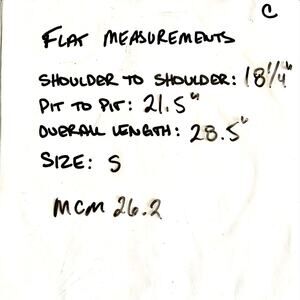 C
FLAT MEASUREMENTS
SHOULDER TO SHOULDER: 18 1/4"
PIT TO PIT: 21.5"
OVERALL LENGTH: 28.5"
SIZE: S
MCM 26.2